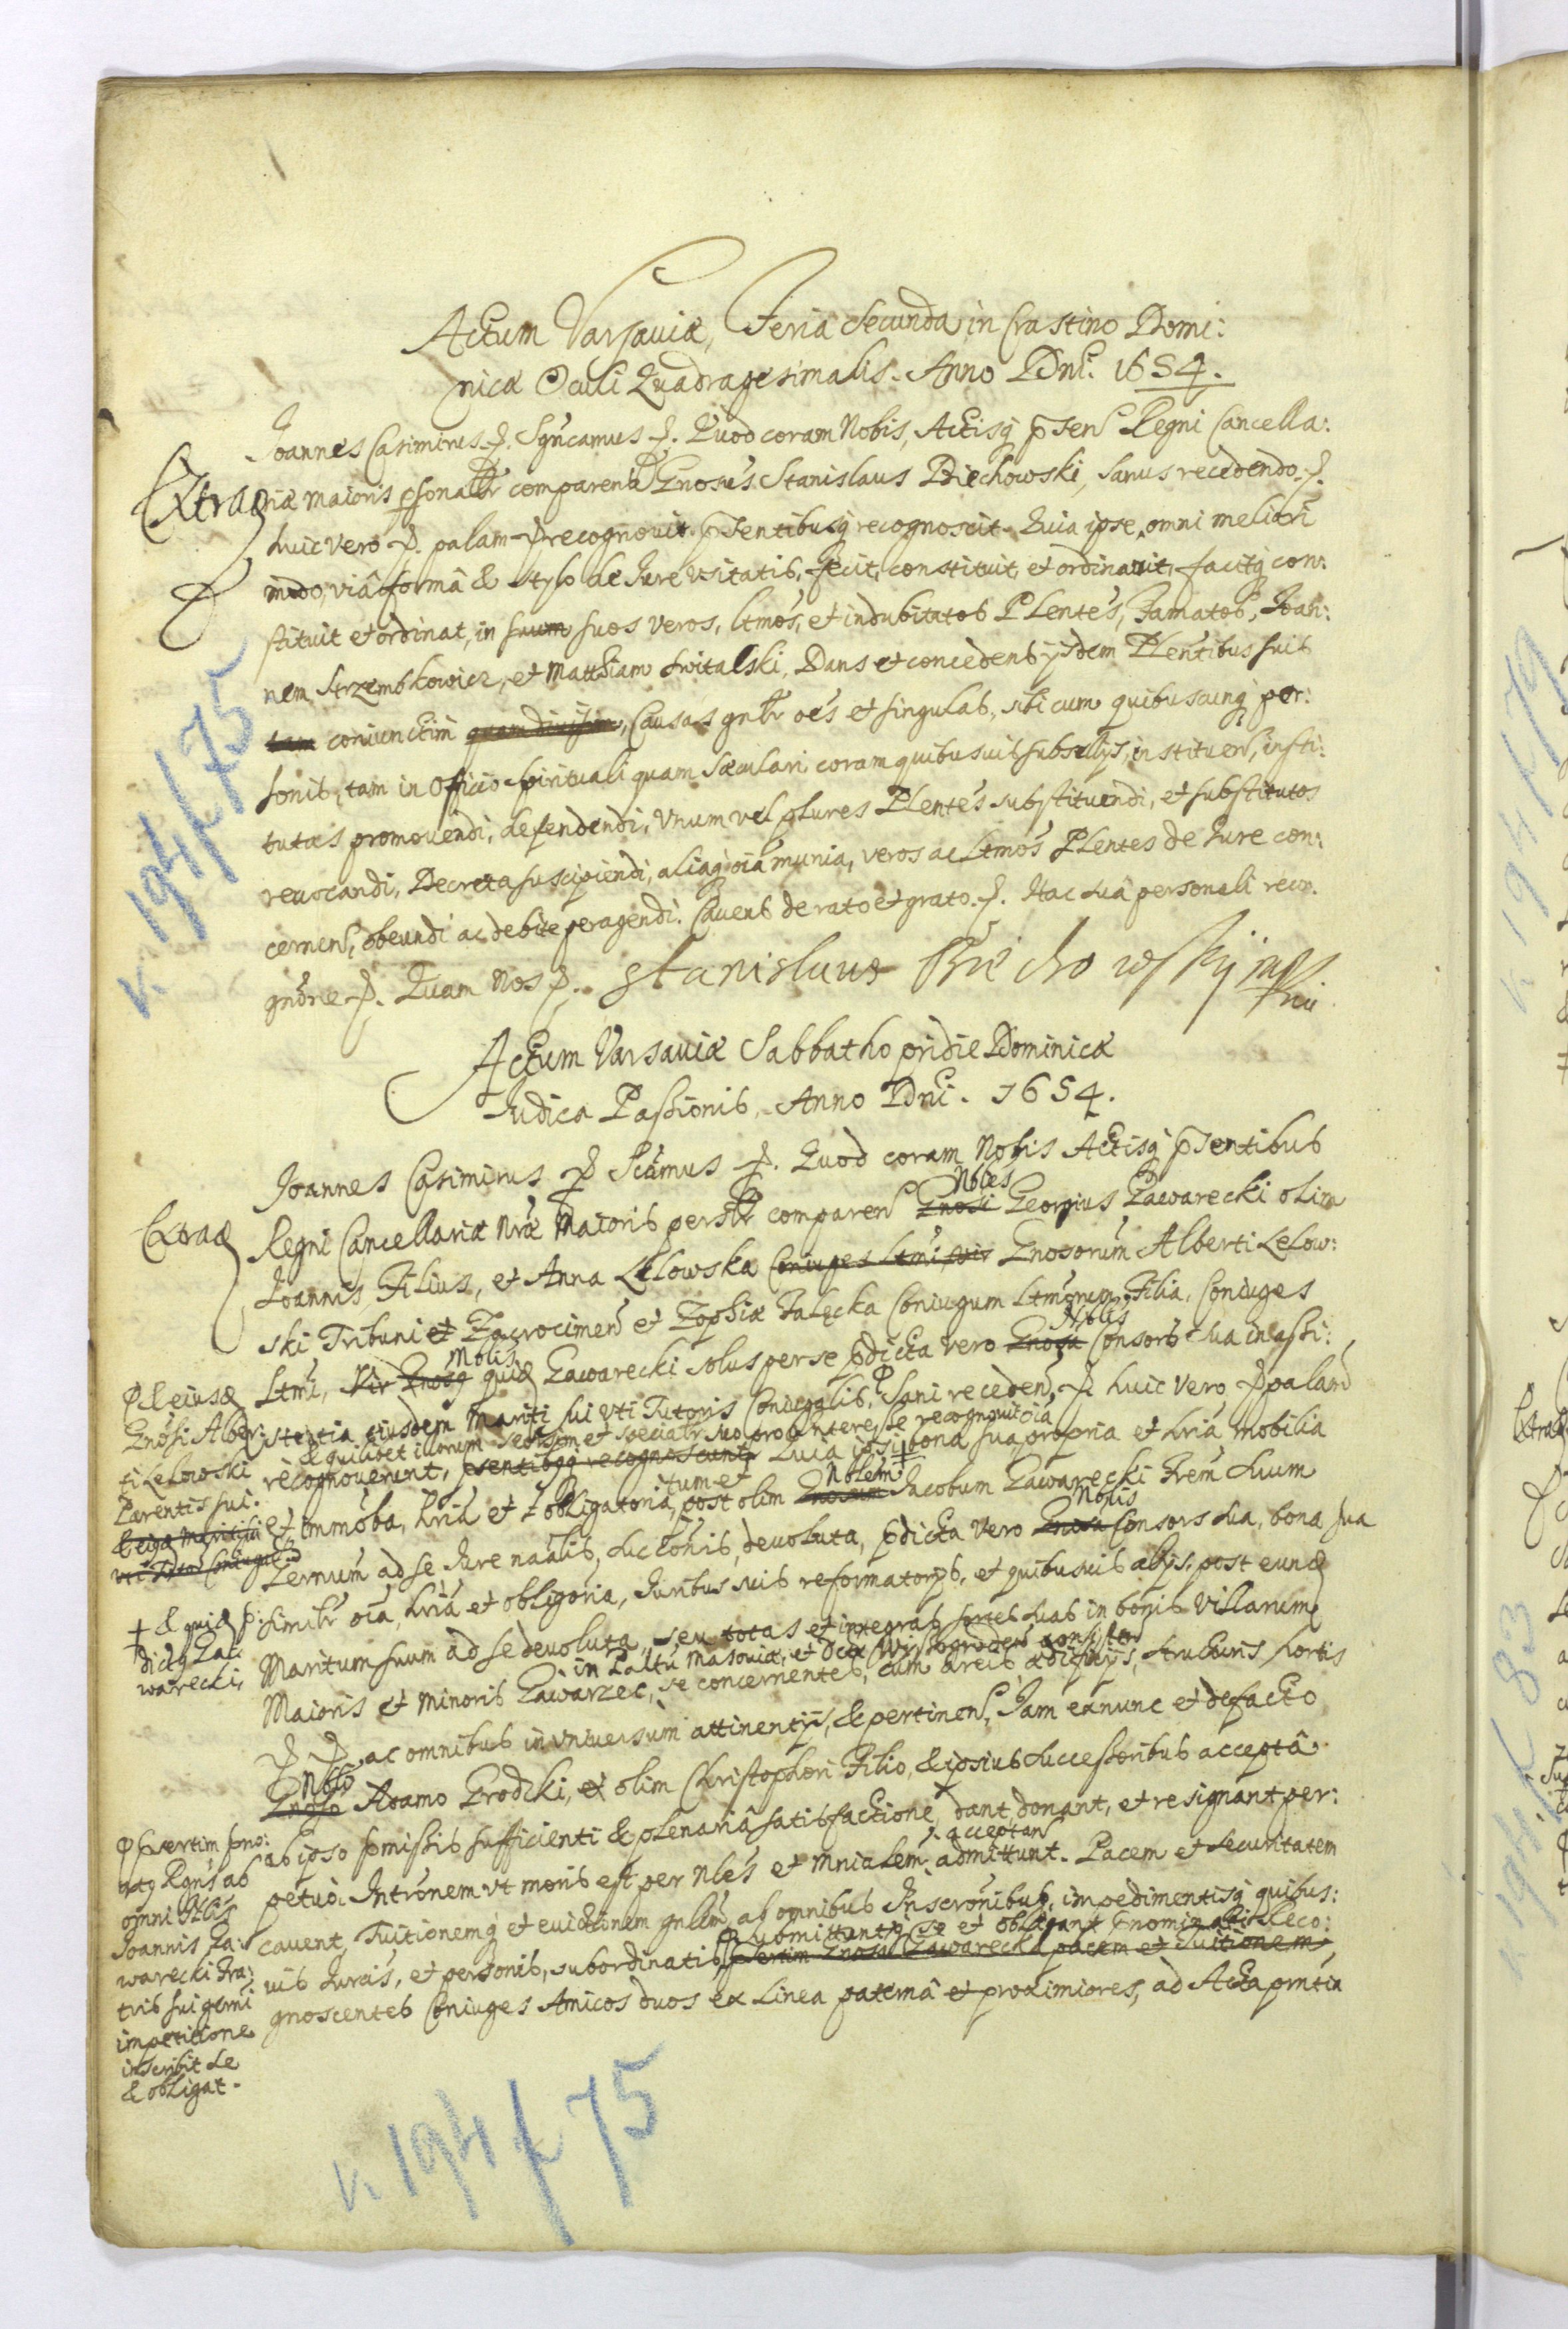 Actum Varsaviæ, Feria Secunda in Crastino Domi:
nicæ Oculi Quadragesimalis. Anno Dni. 1654.
Joannes Casimirus p. Sgncamus p. Quod coram Nobis, Actisq pnsen Regni Cancella:
Extrad
riæ maioris psonalr comparens Gnosus Stanislaus Biechowski, sanus recedendo p.
huic vero p. palam p recognovit pnsentibusq recognoscit. Quia ipse omni meliori
modo, viâ formâ & stylo de Jure usitatis, fecit, constituit et ordinavit, facitq con:
stituit et ordinat, in suum suos veros, ltmos, et indubitatos Plentes, Famatos, Joan:
nem Strzembkowicz, et Matthiam Switalski, Dans et concedens ijsdem Plentibus suis
tam coniunctim quam divisim, Causas gnlr oes et singulas, sibi cum quibuscunq per:
sonis, tam in Officio Spirituali quam Sæculari coram quibusvis subsellijs, instituen, insti:
tutas promovendi, defendendi, Vnum vel plures Plentes substituendi, et substitutos
revocandi, Decreta suscipiendi, aliaq oia munia, veros ac ltmos Plentes de Jure con:
cernen, obeundi ac debite peragendi. Cavens de rato et grato p. Hac suâ personali reco:
gnone p. Quam Nos p. Stanislaus Biechowskij mp
k. 194 f 75
Actum Varsaviæ Sabbatho pridie Dominicæ
Judica Passionis, Anno Dni. 1654.
Joannes Casimirus p Scamus p. Quod coram Nobis Actisq pnsentibus
Extrad
Regni Cancellariæ Nræ Maioris persolr comparen Gnosi Nobles Georgius Zawarecki olim
Joannis Filius, et Anna Lelowska Coniuges ltmi, Gnosorum Alberti Lelow:
ski Tribuni et Zacrocimen et Zophiæ Falęcka Coniugum ltmorum Filia, Coniuges
ltmi, Vir Gnosq Noblis quid Zawarecki solus per se pdicta vero Gnosa Noblis Consors sua in assi:
stentia eiusdem Mariti sui vti Tutoris Coniugalis, Sani receden, p huic vero p palam
& quilibet illorum seorsim et specialr suo pro interesse recognovit
recognoverunt, pnsentibusq recognoscunt Quia ipsi bona sua propria et hria mobilia
et immoba, hria et obligatoria, tum et post olim Gnosum Noblem Jacobum Zawarecki Frem suum
Germum ad se Jure naalis, succonis, devoluta, pdicta vero Gnosa Noblis Consors sua, bona sua
similr oia, hria et obligoria, Juribus suis reformatorys, et quibusvis alijs, post eund
Maritum suum ad se devoluta, seu totas et integras sortes suas in bonis Villarum
in Paltu Masoviæ, et Distr Wissogroden consisten
Maioris et Minoris Zawarzec, se concernentes, cum areis ædificijs, structuris hortis
p p. ac omnibus in vniversum attinentijs, & pertinen, Jam ex nunc et de facto
Gnoso Noblo Adamo Grodzki, olim Christophori Filio, & ipsius successoribus acceptâ
ab ipso pmissis sufficienti & plenariâ satisfactione, dant donant, et resignant per:
petuo. Intronem vt moris est per Nles et Mnialem acceptan admittunt. Pacem et securitatem
cavent, Tuitionemq et evictionem gnlem, ab omnibus Inscronibus, impedimentisq quibus:
submittuntq se et obligant
vis Jurais, et personis, subordinatis, psertim Gnosa Zawarecka pacem et Tuitionem, Reco:
gnoscentes Coniuges Amicos duos ex Linea paternâ et proximiores, ad Acta prntia
& eiusd
Gnosi Alber:
ti Lelowski
Parentis sui.
& eiq Mariti sui
vti Tutor Coniugal
+ & quid p:
dictq Za:
warecki,
psertim pno:
ab
omni
Joannis Za:
warecki Fra:
tris sui germi
impetitione
inscribit se
& obligat.
k. 194 f 75